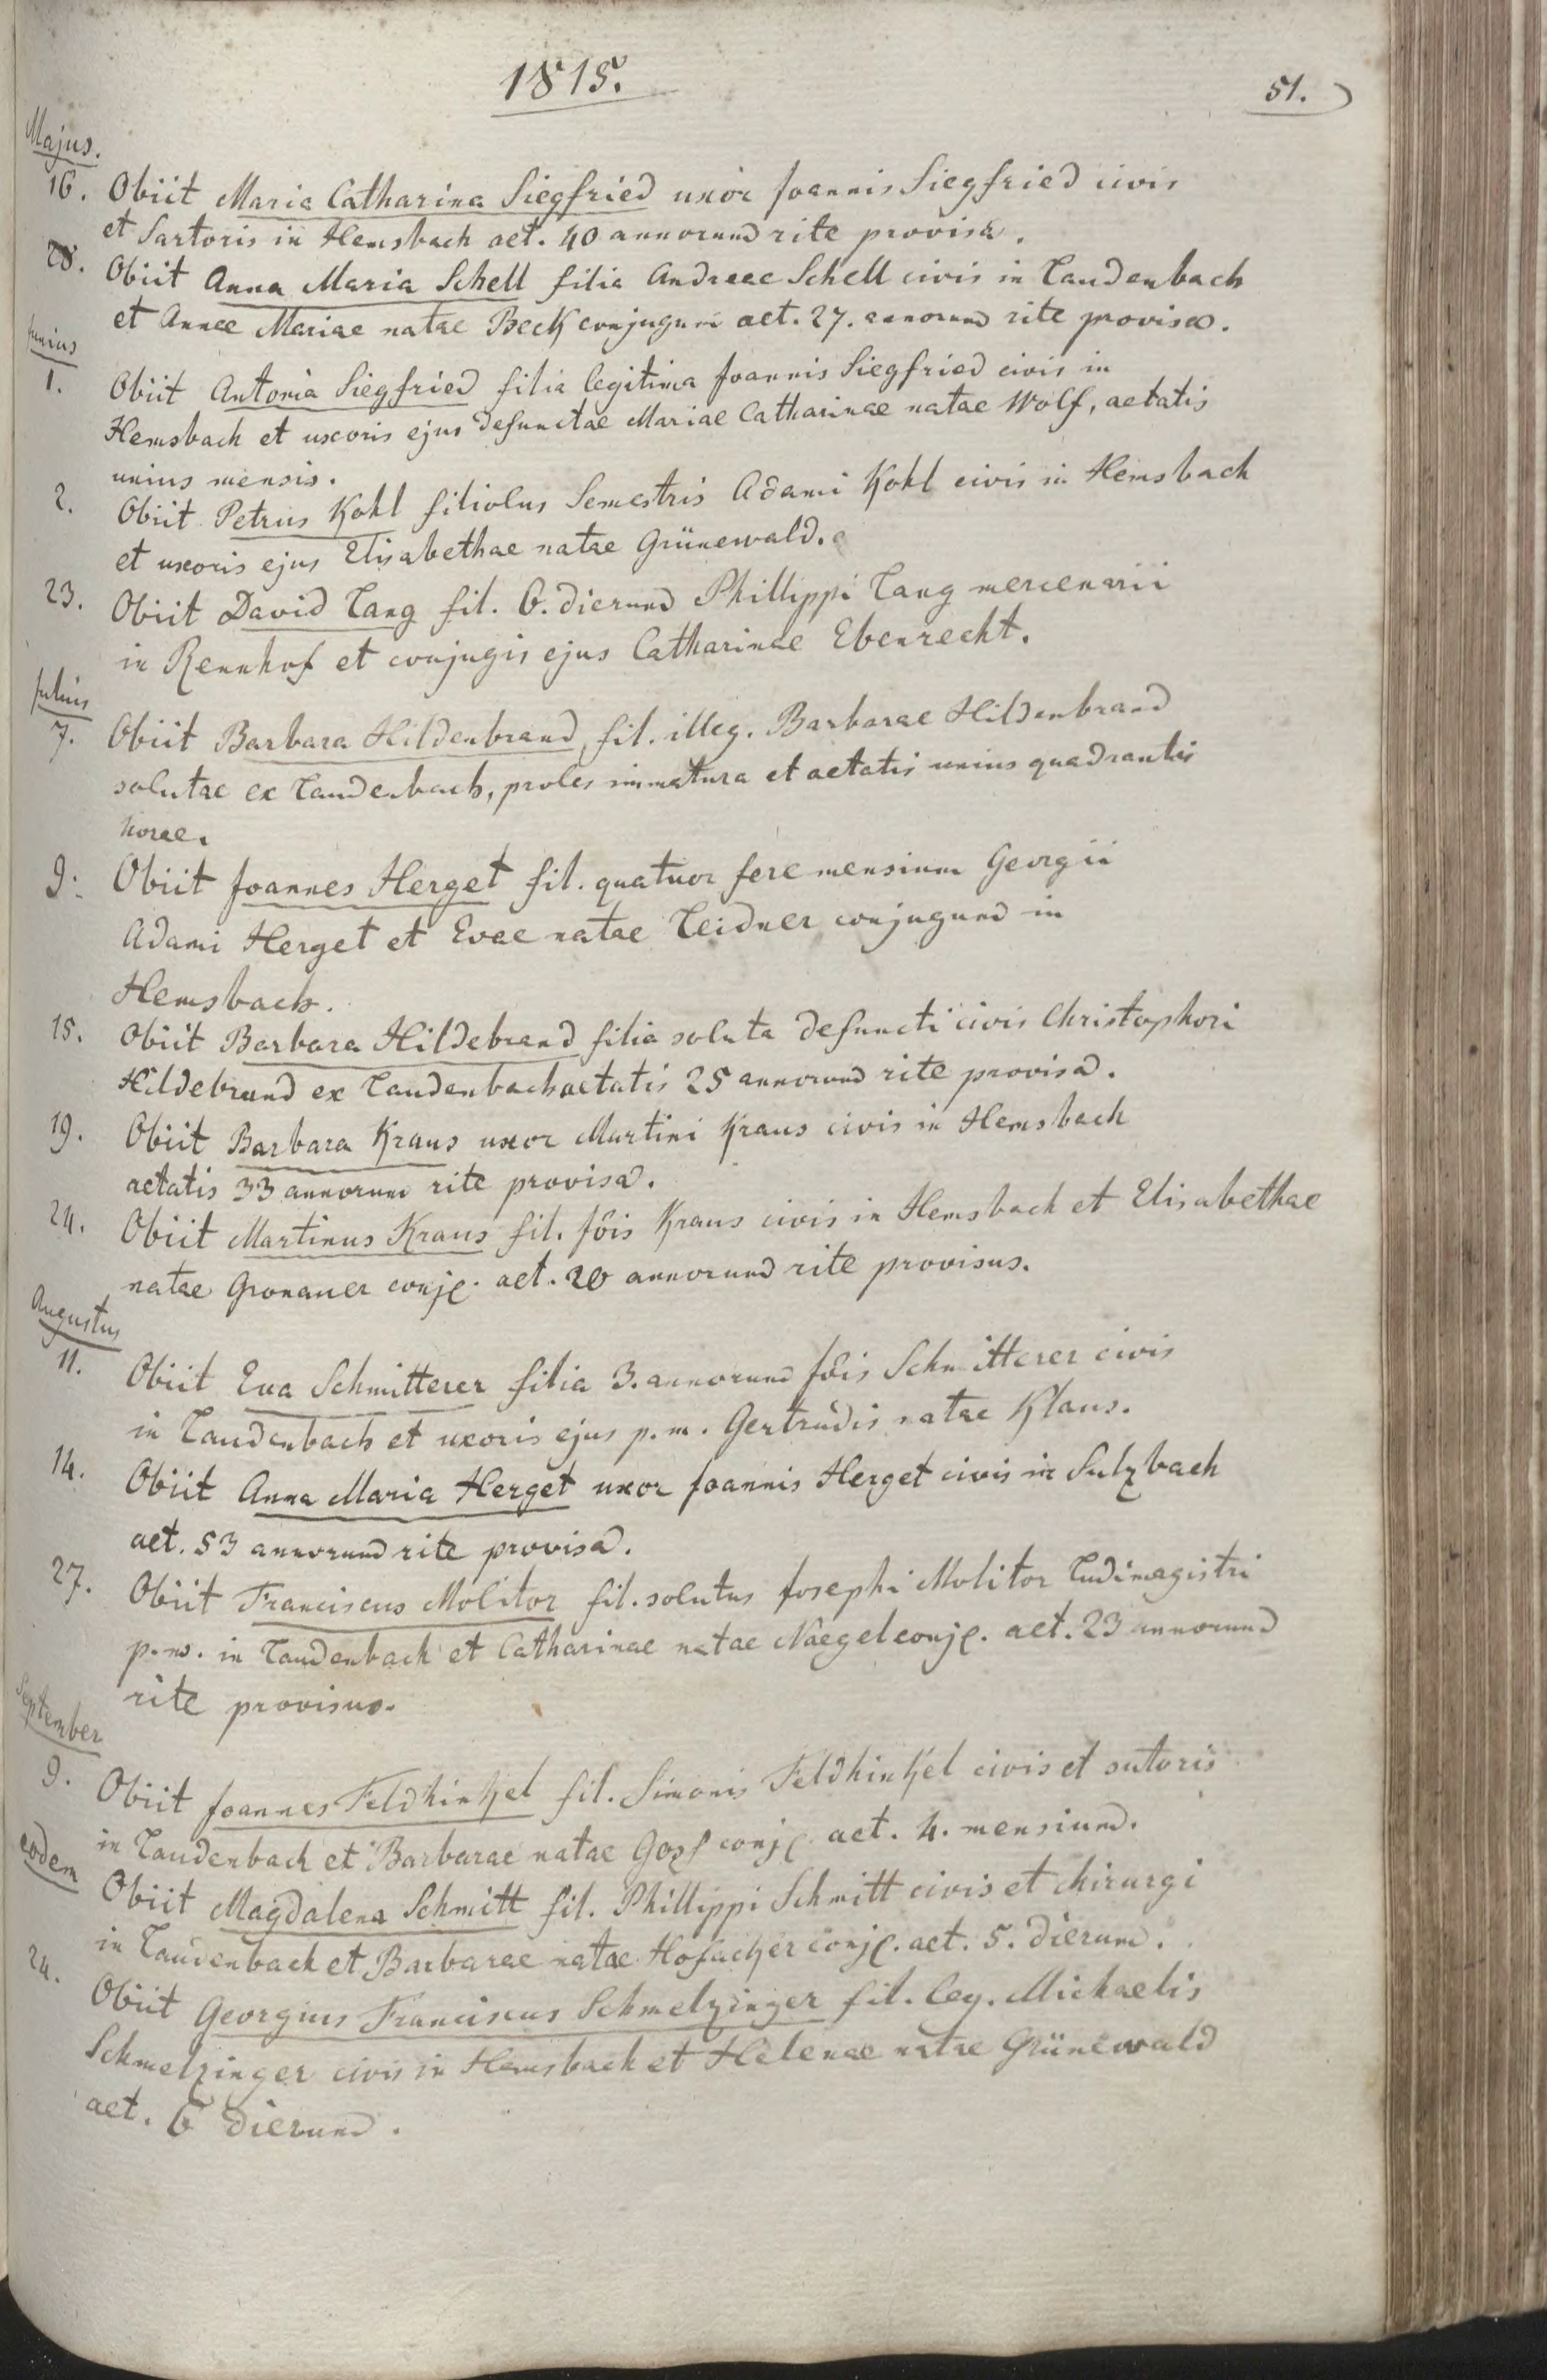 1815.
51.
Majus.
16. Obiit Maria Catharina Siegfried uxor Joannis Siegfried civis
et Sartoris in Hemsbach aet. 40 annorum rite provisa.
28. Obiit Anna Maria Schell filia Andreae Schell civis in Laudenbach
et Annae Mariae natae Beck conjugum aet. 27. annorum rite provisa.
Junius
1. Obiit Antonia Siegfried filia legitima Joannis Siegfried civis in
Hemsbach et uxoris ejus defunctae Mariae Catharinae natae Wolf, aetatis
unius mensis.
2. Obiit Petrus Kohl filiolus Semestris Adami Kohl civis in Hemsbach
et uxoris ejus Elisabethae natae Grünewald.
23. Obiit David Lang fil. 6. dierum Phillippi Lang mercenarii
in Rennhof et conjugis ejus Catharinae Ebenrecht.
Julius
7. Obiit Barbara Hildenbrand, fil. illeg. Barbarae Hildenbrand
solutae ex Laudenbach, proles immatura et aetatis unius quadrantis
horae.
9. Obiit Joannes Herget fil. quatuor fere mensium Georgii
Adami Herget et Evae natae Leidner conjugum in
Hemsbach.
15. Obiit Barbara Hildebrand filia soluta defuncti civis Christophori
Hildebrand ex Laudenbach aetatis 25 annorum rite provisa.
19. Obiit Barbara Kraus uxor Martini Kraus civis in Hemsbach
aetatis 33 annorum rite provisa.
24. Obiit Martinus Kraus fil. Jôis Kraus civis in Hemsbach et Elisabethae
natae Gronauer conj. aet. 20 annorum rite provisus.
Augustus
11. Obiit Eva Schmitterer filia 3. annorum Jôis Schmitterer civis
in Laudenbach et uxoris ejus p. m. Gertrudis natae Klaus.
14. Obiit Anna Maria Herget uxor Joannis Herget civis in Sulzbach
aet. 53 annorum rite provisa.
27. Obiit Franciscus Molitor fil. solutus Josephi Molitor Ludimagistri
p. m. in Laudenbach et Catharinae natae Naegel conj. aet. 23 annorum
rite provisus.
September
9. Obiit Joannes Feldhinkel fil. Simonis Feldhinkel civis et sutoris
in Laudenbach et Barbarae natae conj. aet. 4. mensium.
eodem Obiit Magdalena Schmitt fil. Phillippi Schmitt civis et chirurgi
in Laudenbach et Barbarae natae Hofacker conj. aet. 5. dierum.
24. Obiit Georgius Franciscus Schmelzinger fil. leg. Michaelis
Schmelzinger civis in Hemsbach et Helenae natae Grünewald
aet. 6 dierum.